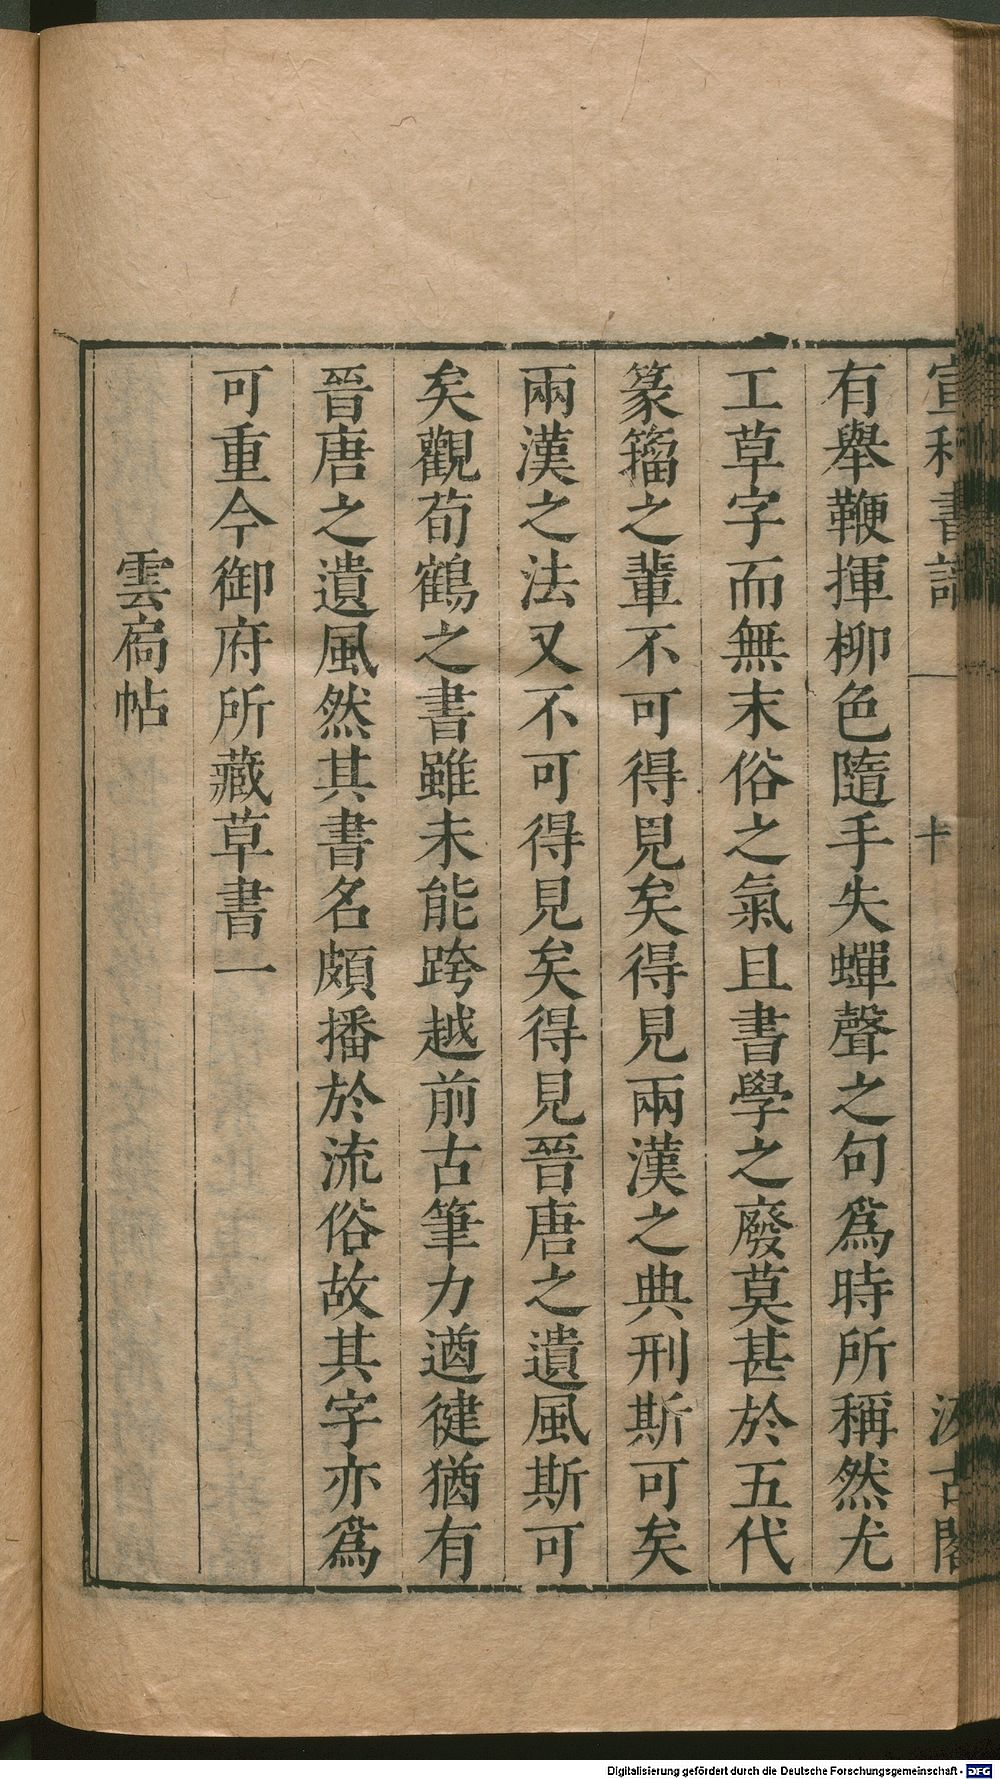 宣和書譜 十 汲古閣
有舉鞭揮柳色隨手失蟬聲之句爲時所稱然尤
工草字而無末俗之氣且書學之廢莫甚於五代
篆籀之輩不可得見矣得見兩漢之典刑斯可矣
兩漢之法又不可得見矣得見晉唐之遺風斯可
矣觀荀鶴之書雖未能跨越前古筆力遒健猶有
晉唐之遺風然其書名頗播於流俗故其字亦爲
可重今御府所藏草書一
雲扃帖
Digitalisierung gefördert durch die Deutsche Forschungsgemeinschaft - DFG